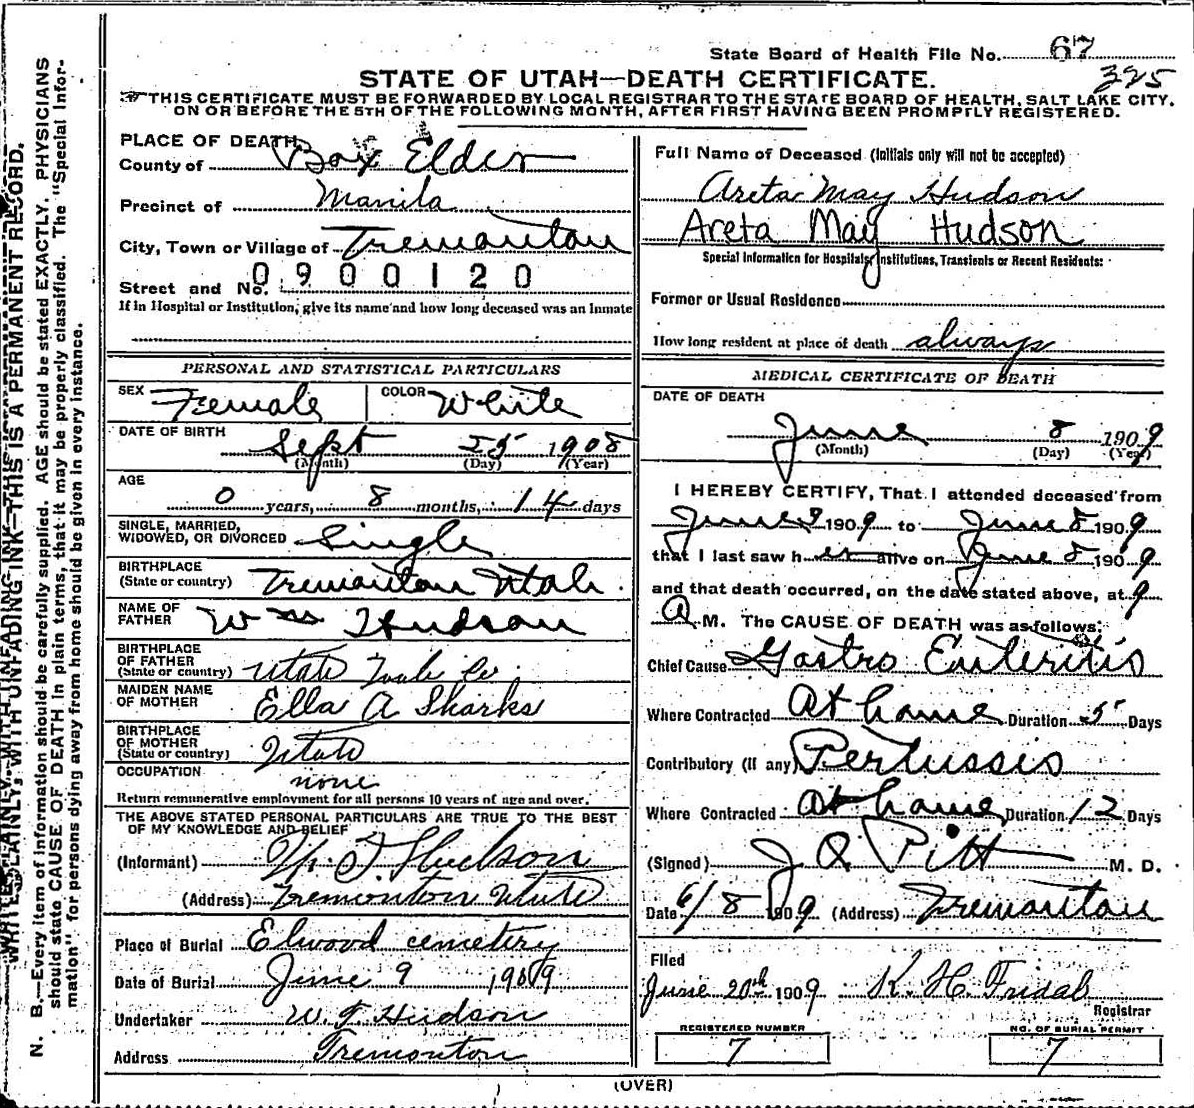 State Board of Health File No. 67
325
STATE OF UTAH—DEATH CERTIFICATE.
THIS CERTIFICATE MUST BE FORWARDED BY LOCAL REGISTRAR TO THE STATE BOARD OF HEALTH, SALT LAKE CITY,
ON OR BEFORE THE 5TH OF THE FOLLOWING MONTH, AFTER FIRST HAVING BEEN PROMPTLY REGISTERED.
PLACE OF DEATH
County of Box Elder
Precinct of Manila
City, Town or Village of Tremonton
0900120
Street and No.
If in Hospital or Institution, give its name and how long deceased was an Inmate
PERSONAL AND STATISTICAL PARTICULARS
SEX Female COLOR White
DATE OF BIRTH
Sept 25 1908
(Month) (Day) (Year)
AGE
0 years, 8 months, 14 days
SINGLE, MARRIED,
WIDOWED, OR DIVORCED Single
BIRTHPLACE
(State or country) Tremonton Utah.
NAME OF
FATHER Wm Hudson
BIRTHPLACE
OF FATHER
(State or country) Utah
MAIDEN NAME
OF MOTHER Ella A Sharks
BIRTHPLACE
OF MOTHER
(State or country) Utah
OCCUPATION
none
Return remunerative employment for all persons 10 years of age and over.
THE ABOVE STATED PERSONAL PARTICULARS ARE TRUE TO THE BEST
OF MY KNOWLEDGE AND BELIEF
(Informant) Hudson
(Address) Tremonton Utah
Place of Burial Elwood cemetery
Date of Burial June 9, 1909
Undertaker W. F. Hudson
Address Tremonton
Full Name of Deceased (Initials only will not be accepted)
Areta May Hudson
Areta May Hudson
Special Information for Hospitals, Institutions, Transients or Recent Residents:
Former or Usual Residence
How long resident at place of death always
MEDICAL CERTIFICATE OF DEATH
DATE OF DEATH
June 8 1909
(Month) (Day) (Year)
I HEREBY CERTIFY, That I attended deceased from
June 3 1909 to June 8 1909
that I last saw her alive on June 8 1909
and that death occurred, on the date stated above, at 9
A M. The CAUSE OF DEATH was as follows:
Chief Cause Gastro Enteritis
Where Contracted At home Duration 5 Days
Contributory (if any) Pertussis
Where Contracted At home Duration 12 Days
(Signed) J A Pitt M. D.
Date 6/8 1909 (Address) Tremonton
Filed
June 20th 1909 K. H. Fridal
Registrar
REGISTERED NUMBER
7
NO. OF BURIAL PERMIT
7
(OVER)
WRITE PLAINLY, WITH UNFADING INK—THIS IS A PERMANENT RECORD.
N. B.—Every item of information should be carefully supplied. AGE should be stated EXACTLY. PHYSICIANS
should state CAUSE OF DEATH in plain terms, that it may be properly classified. The "Special Infor-
mation" for persons dying away from home should be given in every instance.